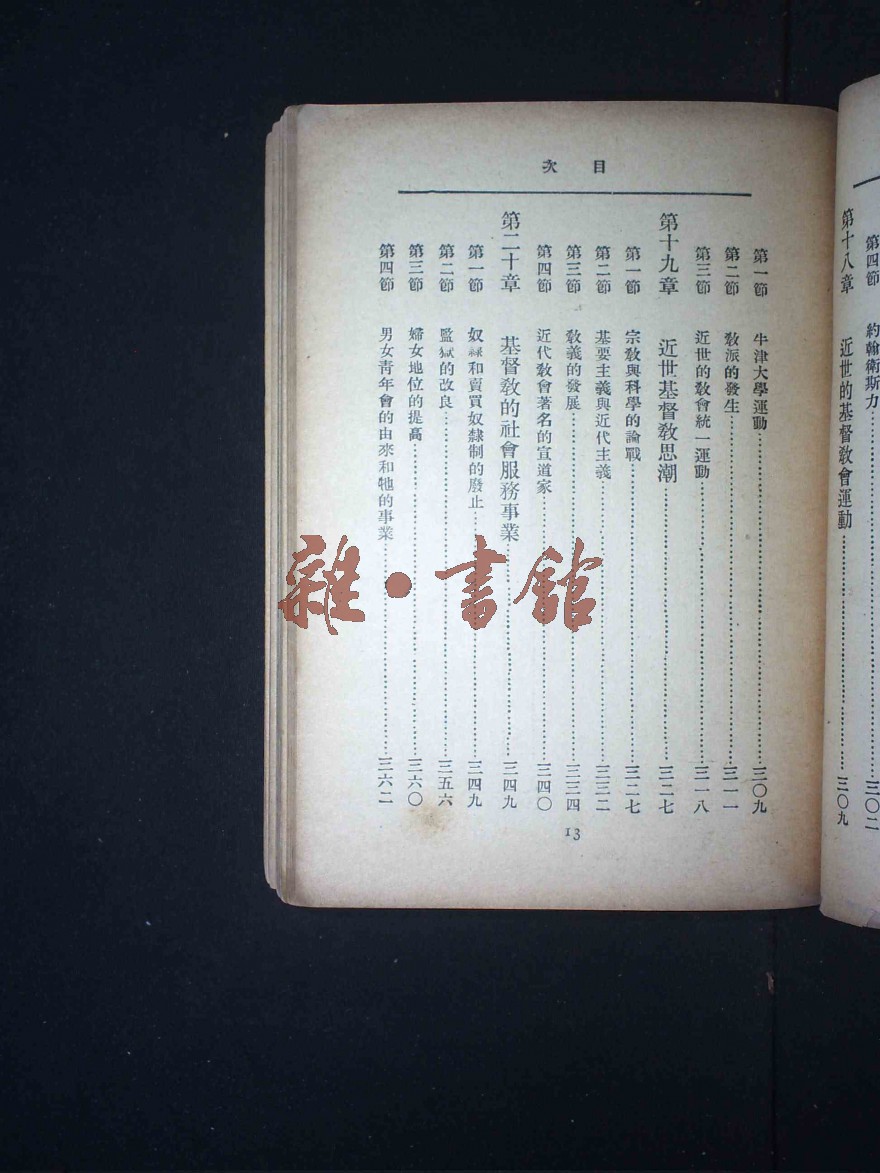 第四節　約翰衞斯力……三〇二
第十八章　近世的基督敎會運動……三〇九
目次
第一節　牛津大學運動……三〇九
第二節　敎派的發生……三一一
第三節　近世的敎會統一運動……三一八
第十九章　近世基督敎思潮……三二七
第一節　宗敎與科學的論戰……三二七
第二節　基要主義與近代主義……三三二
第三節　敎義的發展……三三四
第四節　近代敎會著名的宣道家……三四〇
第二十章　基督敎的社會服務事業……三四九
第一節　奴隸和賣買奴隸制的廢止……三四九
第二節　監獄的改良……三五六
第三節　婦女地位的提高……三六〇
第四節　男女靑年會的由來和牠的事業……三六二
13
雜·書館